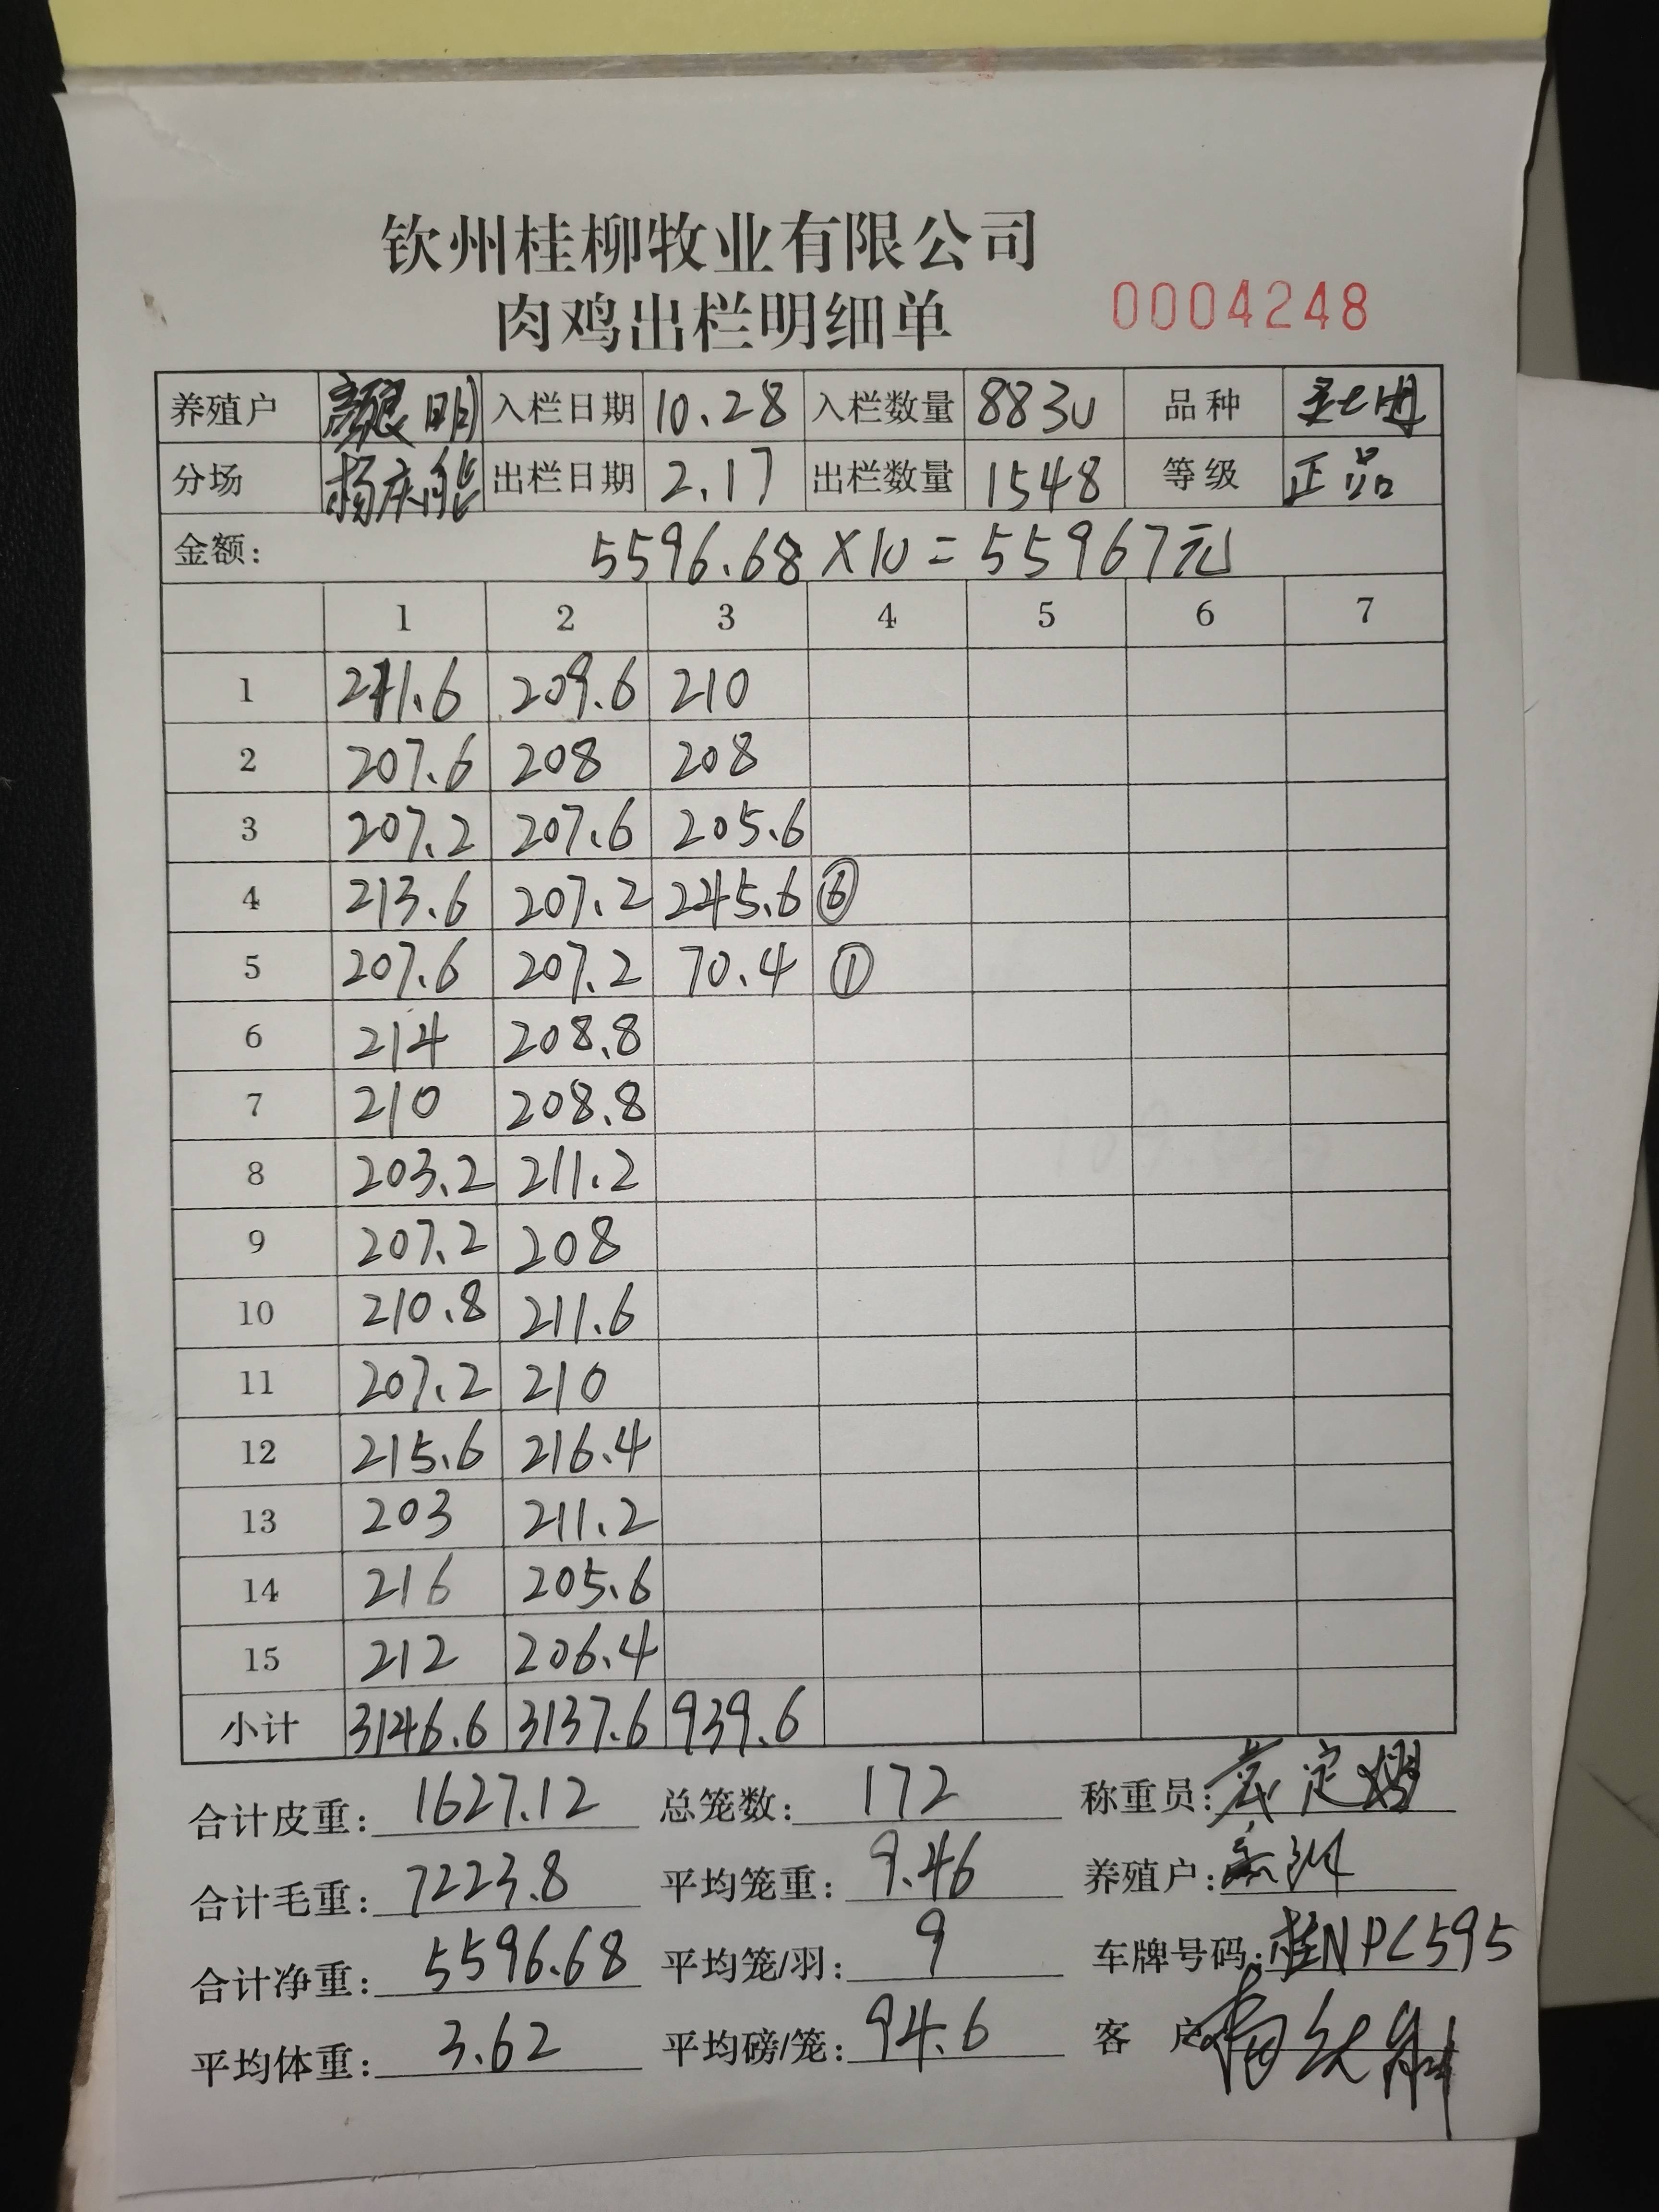 钦州桂柳牧业有限公司
肉鸡出栏明细单 0004248
养殖户 颜良明 入栏日期 10.28 入栏数量 8830 品种
分场 杨庆能 出栏日期 2.17 出栏数量 1548 等级 正品
金额: 5596.68×10=55967元
1 2 3 4 5 6 7
1 211.6 209.6 210
2 207.6 208 208
3 207.2 207.6 205.6
4 213.6 207.2 245.6 ⑥
5 207.6 207.2 70.4 ①
6 214 208.8
7 210 208.8
8 203.2 211.2
9 207.2 208
10 210.8 211.6
11 207.2 210
12 215.6 216.4
13 203 211.2
14 216 205.6
15 212 206.4
小计 3146.6 3137.6 939.6
合计皮重: 1627.12 总笼数: 172 称重员:
合计毛重: 7223.8 平均笼重: 9.46 养殖户:
合计净重: 5596.68 平均笼/羽: 9 车牌号码: 桂NPC595
平均体重: 3.62 平均磅/笼: 94.6 客户